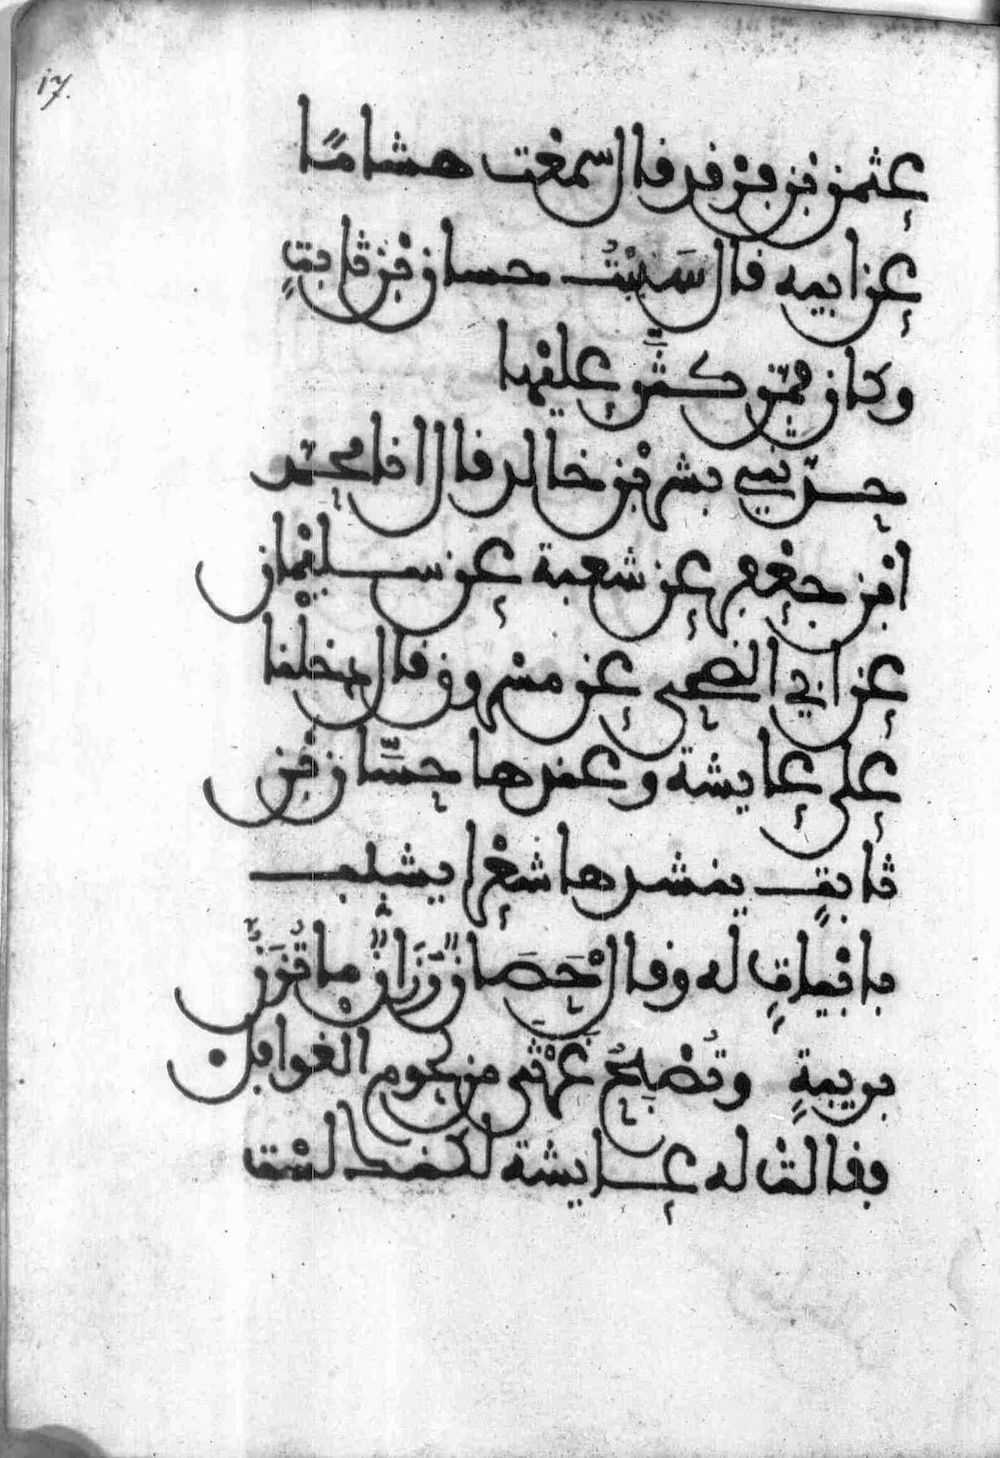 17.
عثمن بن فرقد قال سمعت هشامًا
عن ابيه قال سَبَبْتُ حسان بن ثابتٍ
وكان ممّن كثَّر عليها
حدّثني بشر بْن خالد قال انا محمّد
ابْن جعْفر عن شعبة عن سليْمان
عن ابي الضحى عن مسْروق قال دخلْنا
على عايشة وعندها حسَّان بْن
ثابت ينشدها شعْرا يشبب
بابْياتٍ له وقال حَصَانٌ رَزَانٌ ما تُزَنُّ
بريبةٍ وتُصْبِحُ غَرْثَى من لحوم الغوافل
فقالتْ له عايشة لكنك لسْت